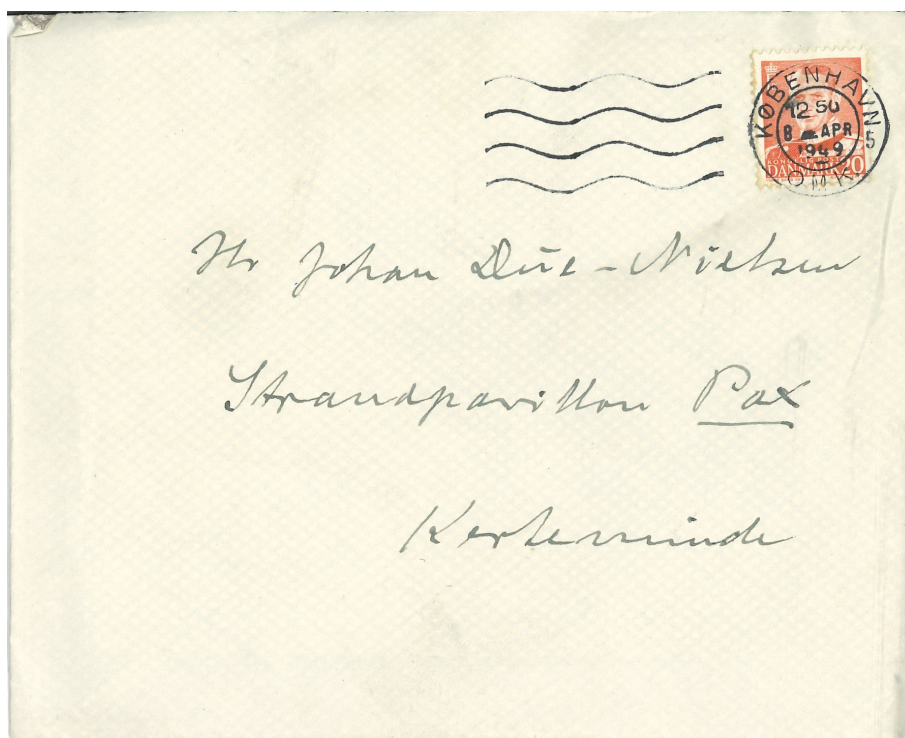 KØBENHAVN 5
12-50
8 APR
1949
OMK.
DANMARK 20
Hr Johan Due-Nielsen
Strandpavillon Pax
Kerteminde